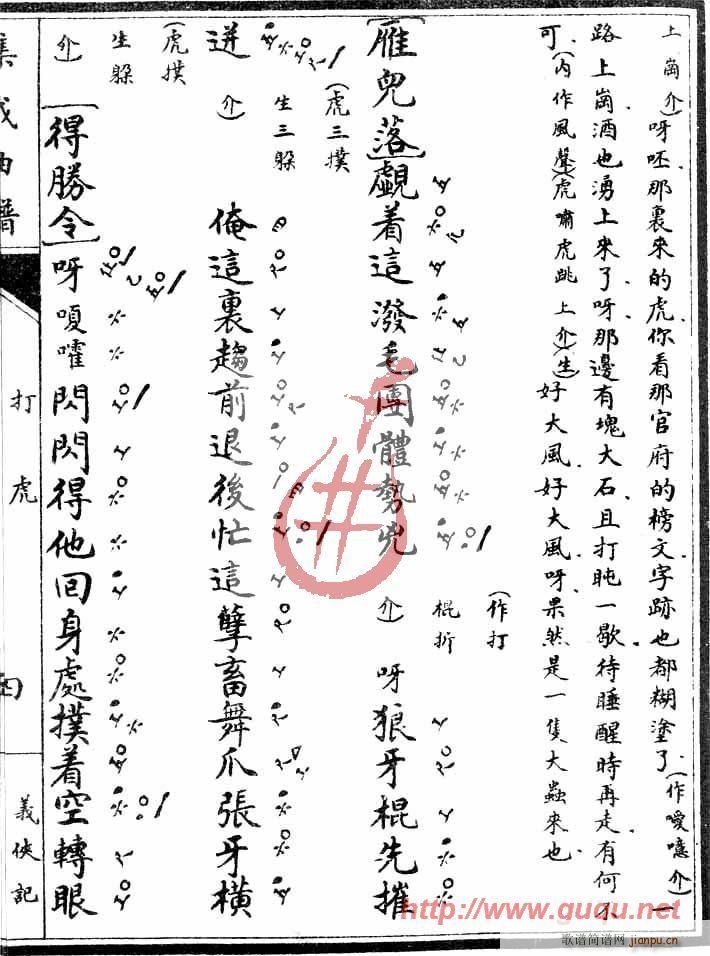 上崗介)呀呸那裏來的虎你看那官府的榜文字跡也都糊塗了(作噯噫介)一
路上崗酒也湧上來了呀那邊有塊大石且打盹一歇待睡醒時再走有何不
可(內作風聲)(虎嘯虎跳上介)(生)好大風好大風呀果然是一隻大蟲來也
[雁兒落]覷着這潑毛團體勢兇(作打棍折介)呀狼牙棍先摧
迸(虎三撲生三躱介)俺這裏趨前退後忙這孽畜舞爪張牙橫
(虎撲生躱介)[得勝令]呀嗄嚯閃閃得他回身處撲着空轉眼
集成曲譜
打虎
義俠記
http://www.guqu.net
歌谱简谱网
jianpu.cn